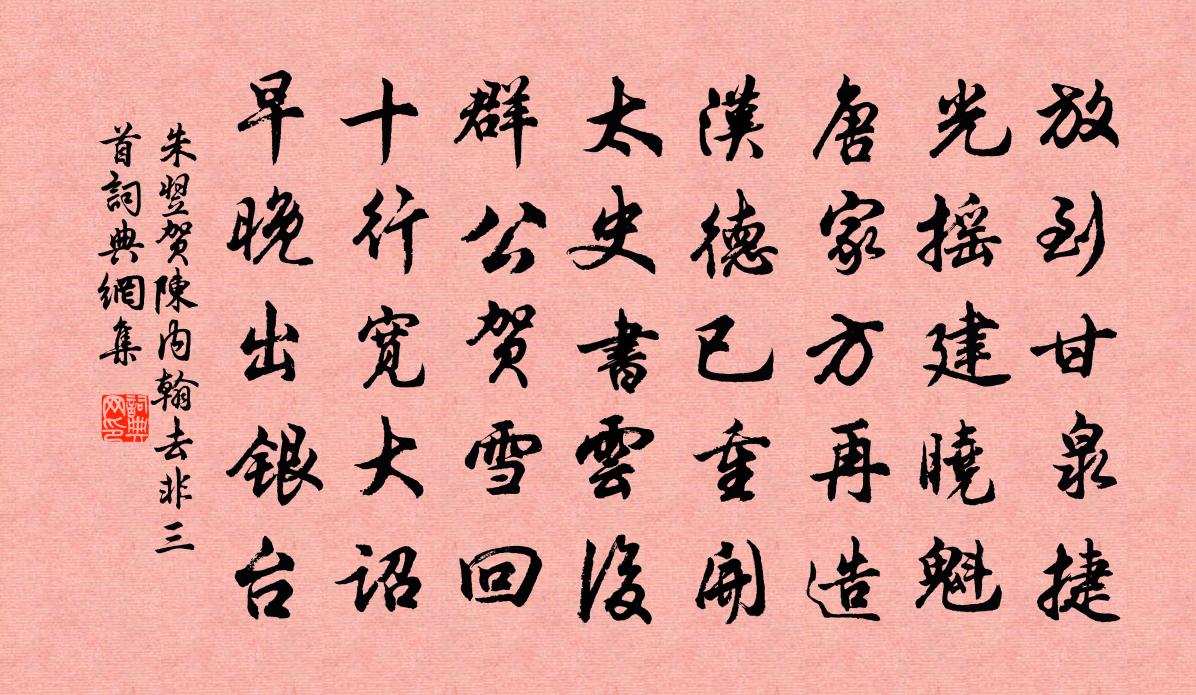 放到甘泉捷
光摇建曉魁
唐家方再造
漢德已重開
太史書雲後
群公賀雪回
十行寬大詔
早晚出銀台
朱翌賀陳内翰去非三
首詞典網集
詞典網印